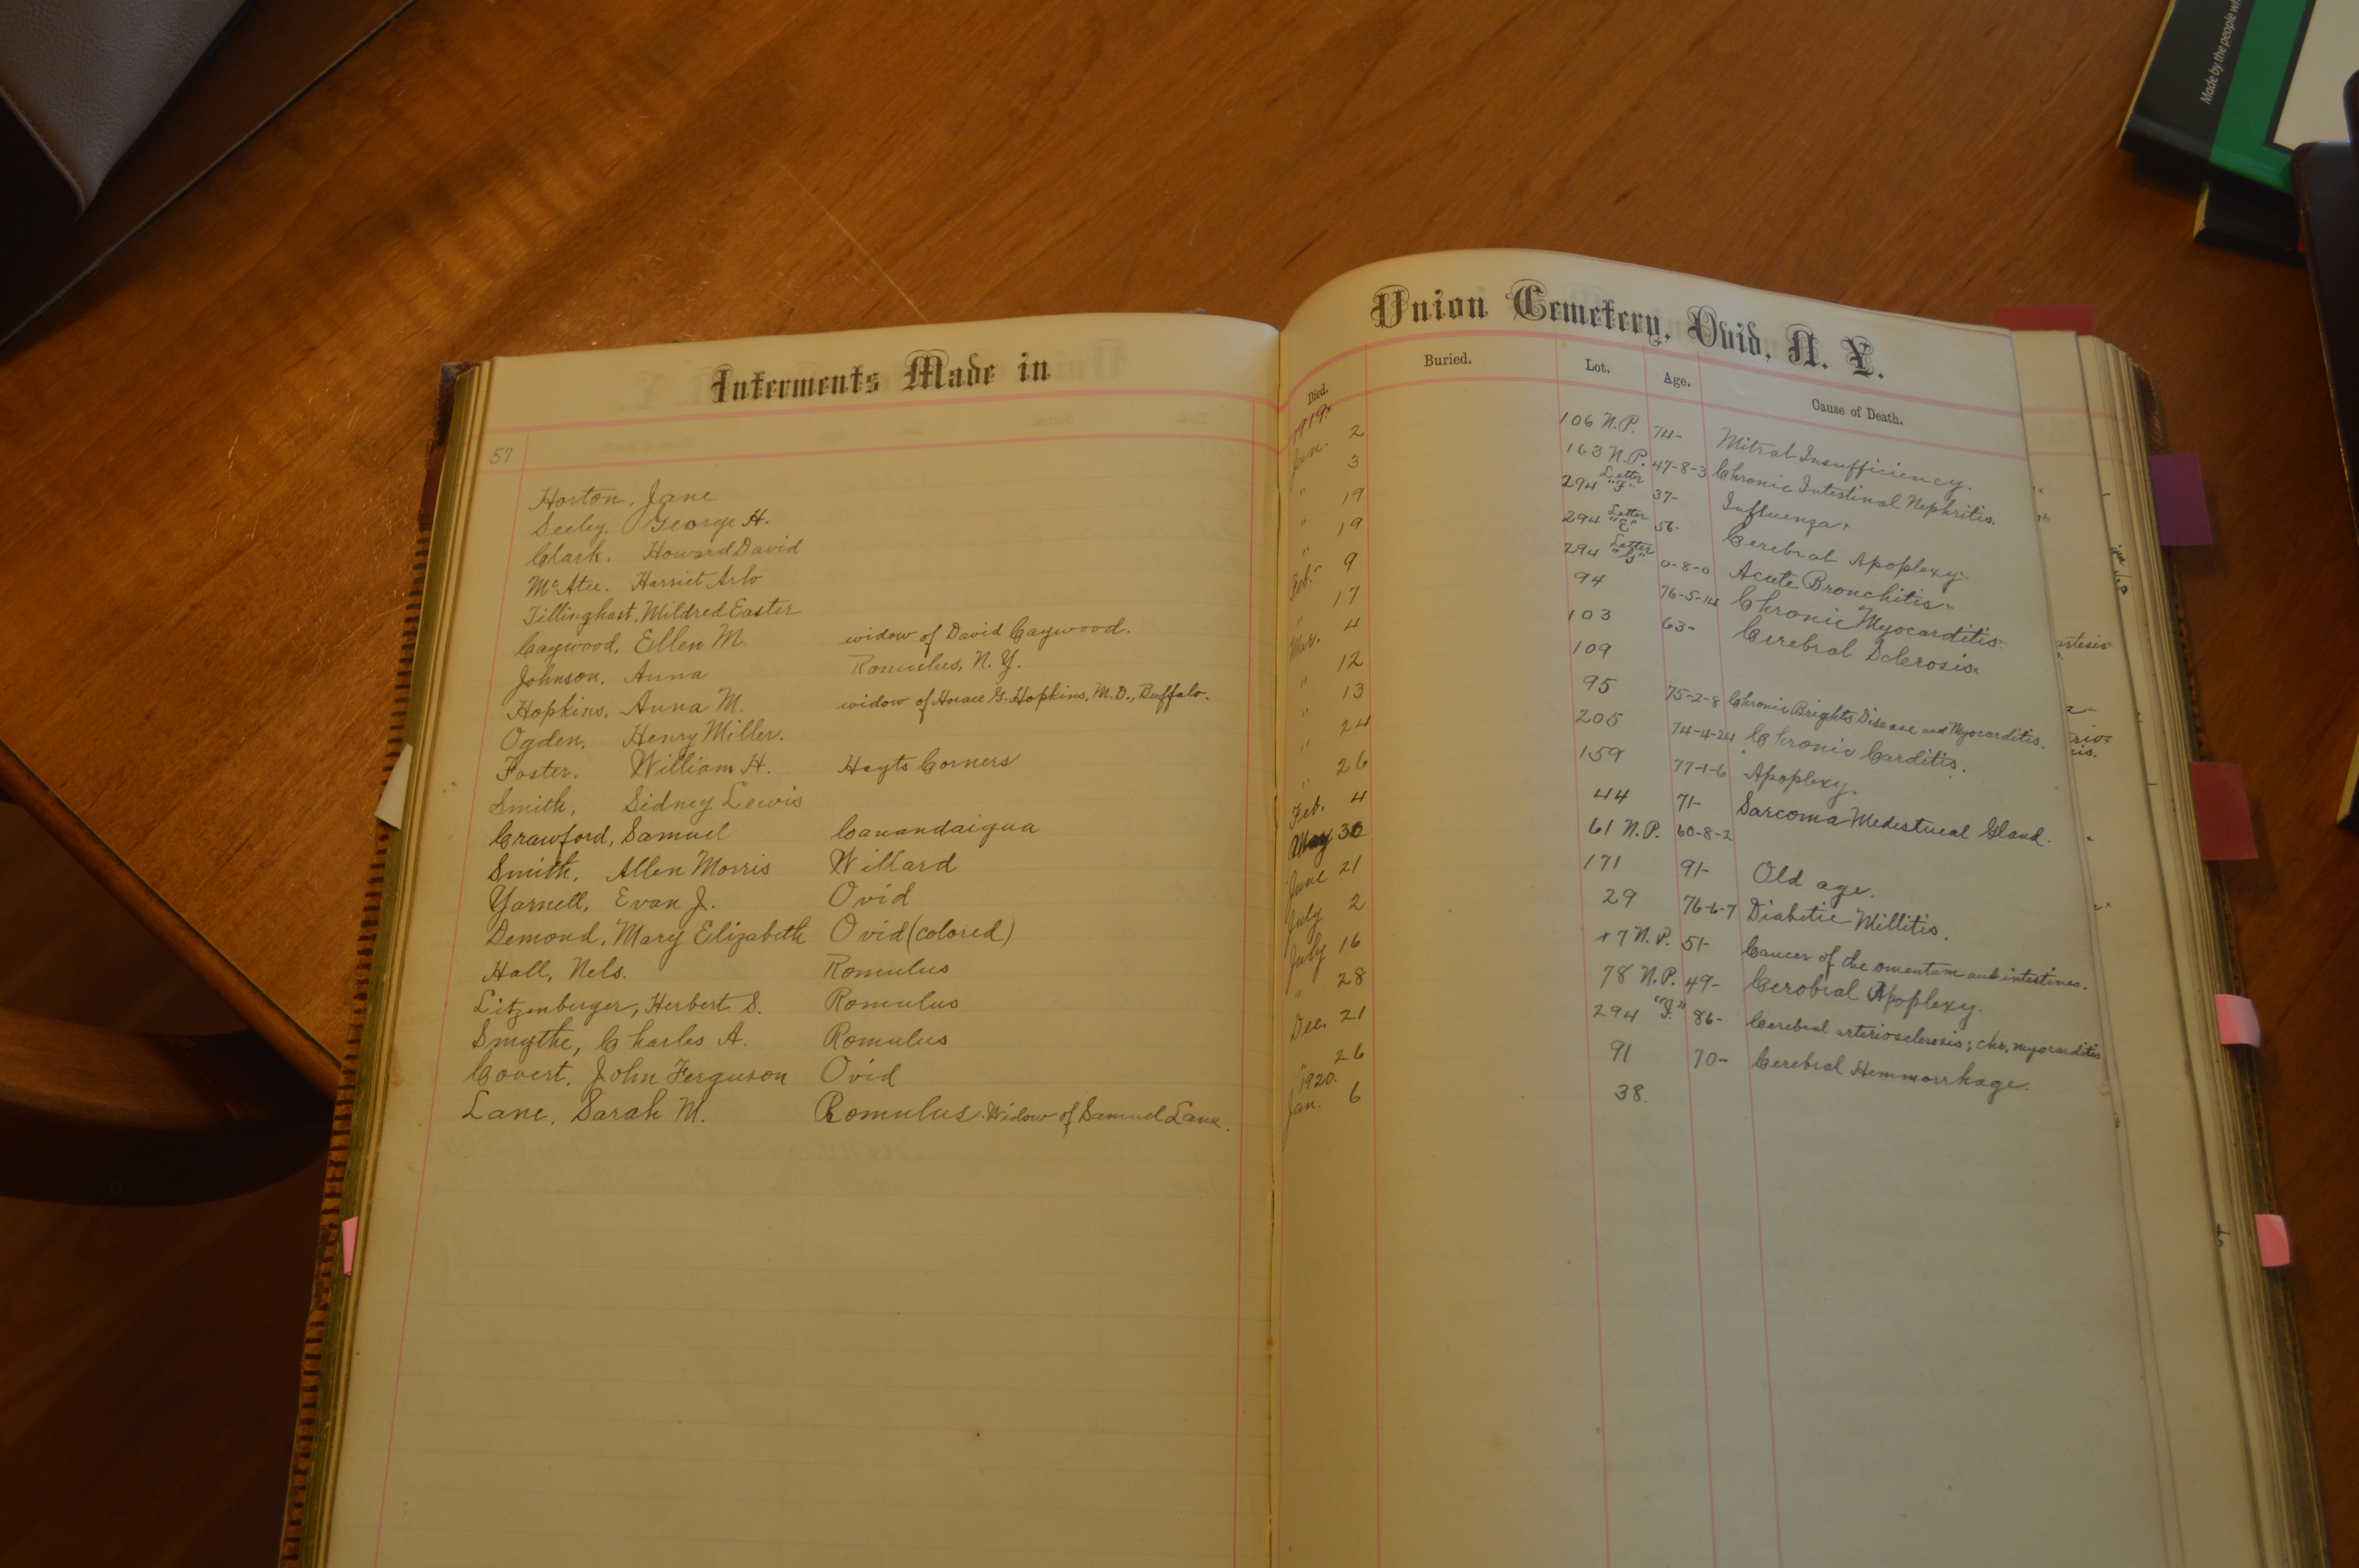 Interments Made in
57
Horton, Jane
Seeley. George H.
Clark. Howard David
McAtee. Harriet Arlo
Tillinghast, Mildred Easter
Caywood, Ellen M. widow of David Caywood.
Johnson, Anna Romulus, N.Y.
Hopkins, Anna M. widow of Horace G. Hopkins, M.D., Buffalo.
Ogden, Henry Miller.
Foster, William H. Hayts Corners
Smith, Sidney Lewis
Crawford, Samuel Canandaigua
Smith, Allen Morris Willard
Yarnell, Evan J. Ovid
Demond, Mary Elizabeth Ovid (colored)
Hall, Nels. Romulus
Litzenberger, Herbert S. Romulus
Smythe, Charles A. Romulus
Covert, John Ferguson Ovid
Lane, Sarah M. Romulus. Widow of Samuel Lane.
Union Cemetery, Ovid, N. Y.
Died. Buried. Lot. Age. Cause of Death.
1919.
Jan. 2 106 N.P. 74- Mitral Insufficiency.
" 3 163 N.P. 47-8-3 Chronic Intestinal Nephritis.
" 19 294 Letter "F" 37- Influenza.
" 19 294 Letter "E" 56- Cerebral Apoplexy.
Feb. 9 294 Letter "G" 0-8-0 Acute Bronchitis.
" 17 94 76-5-14 Chronic Myocarditis.
Mar. 4 103 63- Cerebral Sclerosis.
" 12 109
" 13 95 75-2-8 Chronic Brights Disease and Myocarditis.
" 24 205 74-4-24 Chronic Carditis.
" 26 159 77-1-6 Apoplexy.
Feb. 4 44 71- Sarcoma Medestueal Gland.
May 30 61 N.P. 60-8-2
June 21 171 91- Old age.
July 2 29 76-6-7 Diabetic Millitis.
July 16 7 N.P. 51- Cancer of the omentum and intestines.
" 28 78 N.P. 49- Cerobral Apoplexy.
Dec. 21 294 86- Cerebral arteriosclerosis; chr. myocarditis
" 26 91 70- Cerebral Hemmorrhage.
1920.
Jan. 6 38.
Made by the people wh